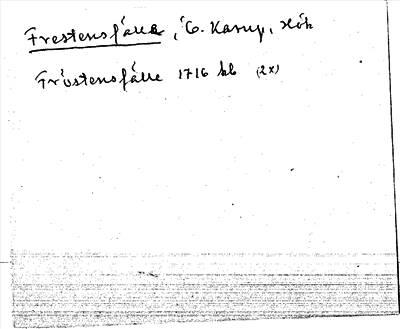 Frestensfälle, Ö. Karup, Hök
Fröstensfälle 1716 kb (2x)